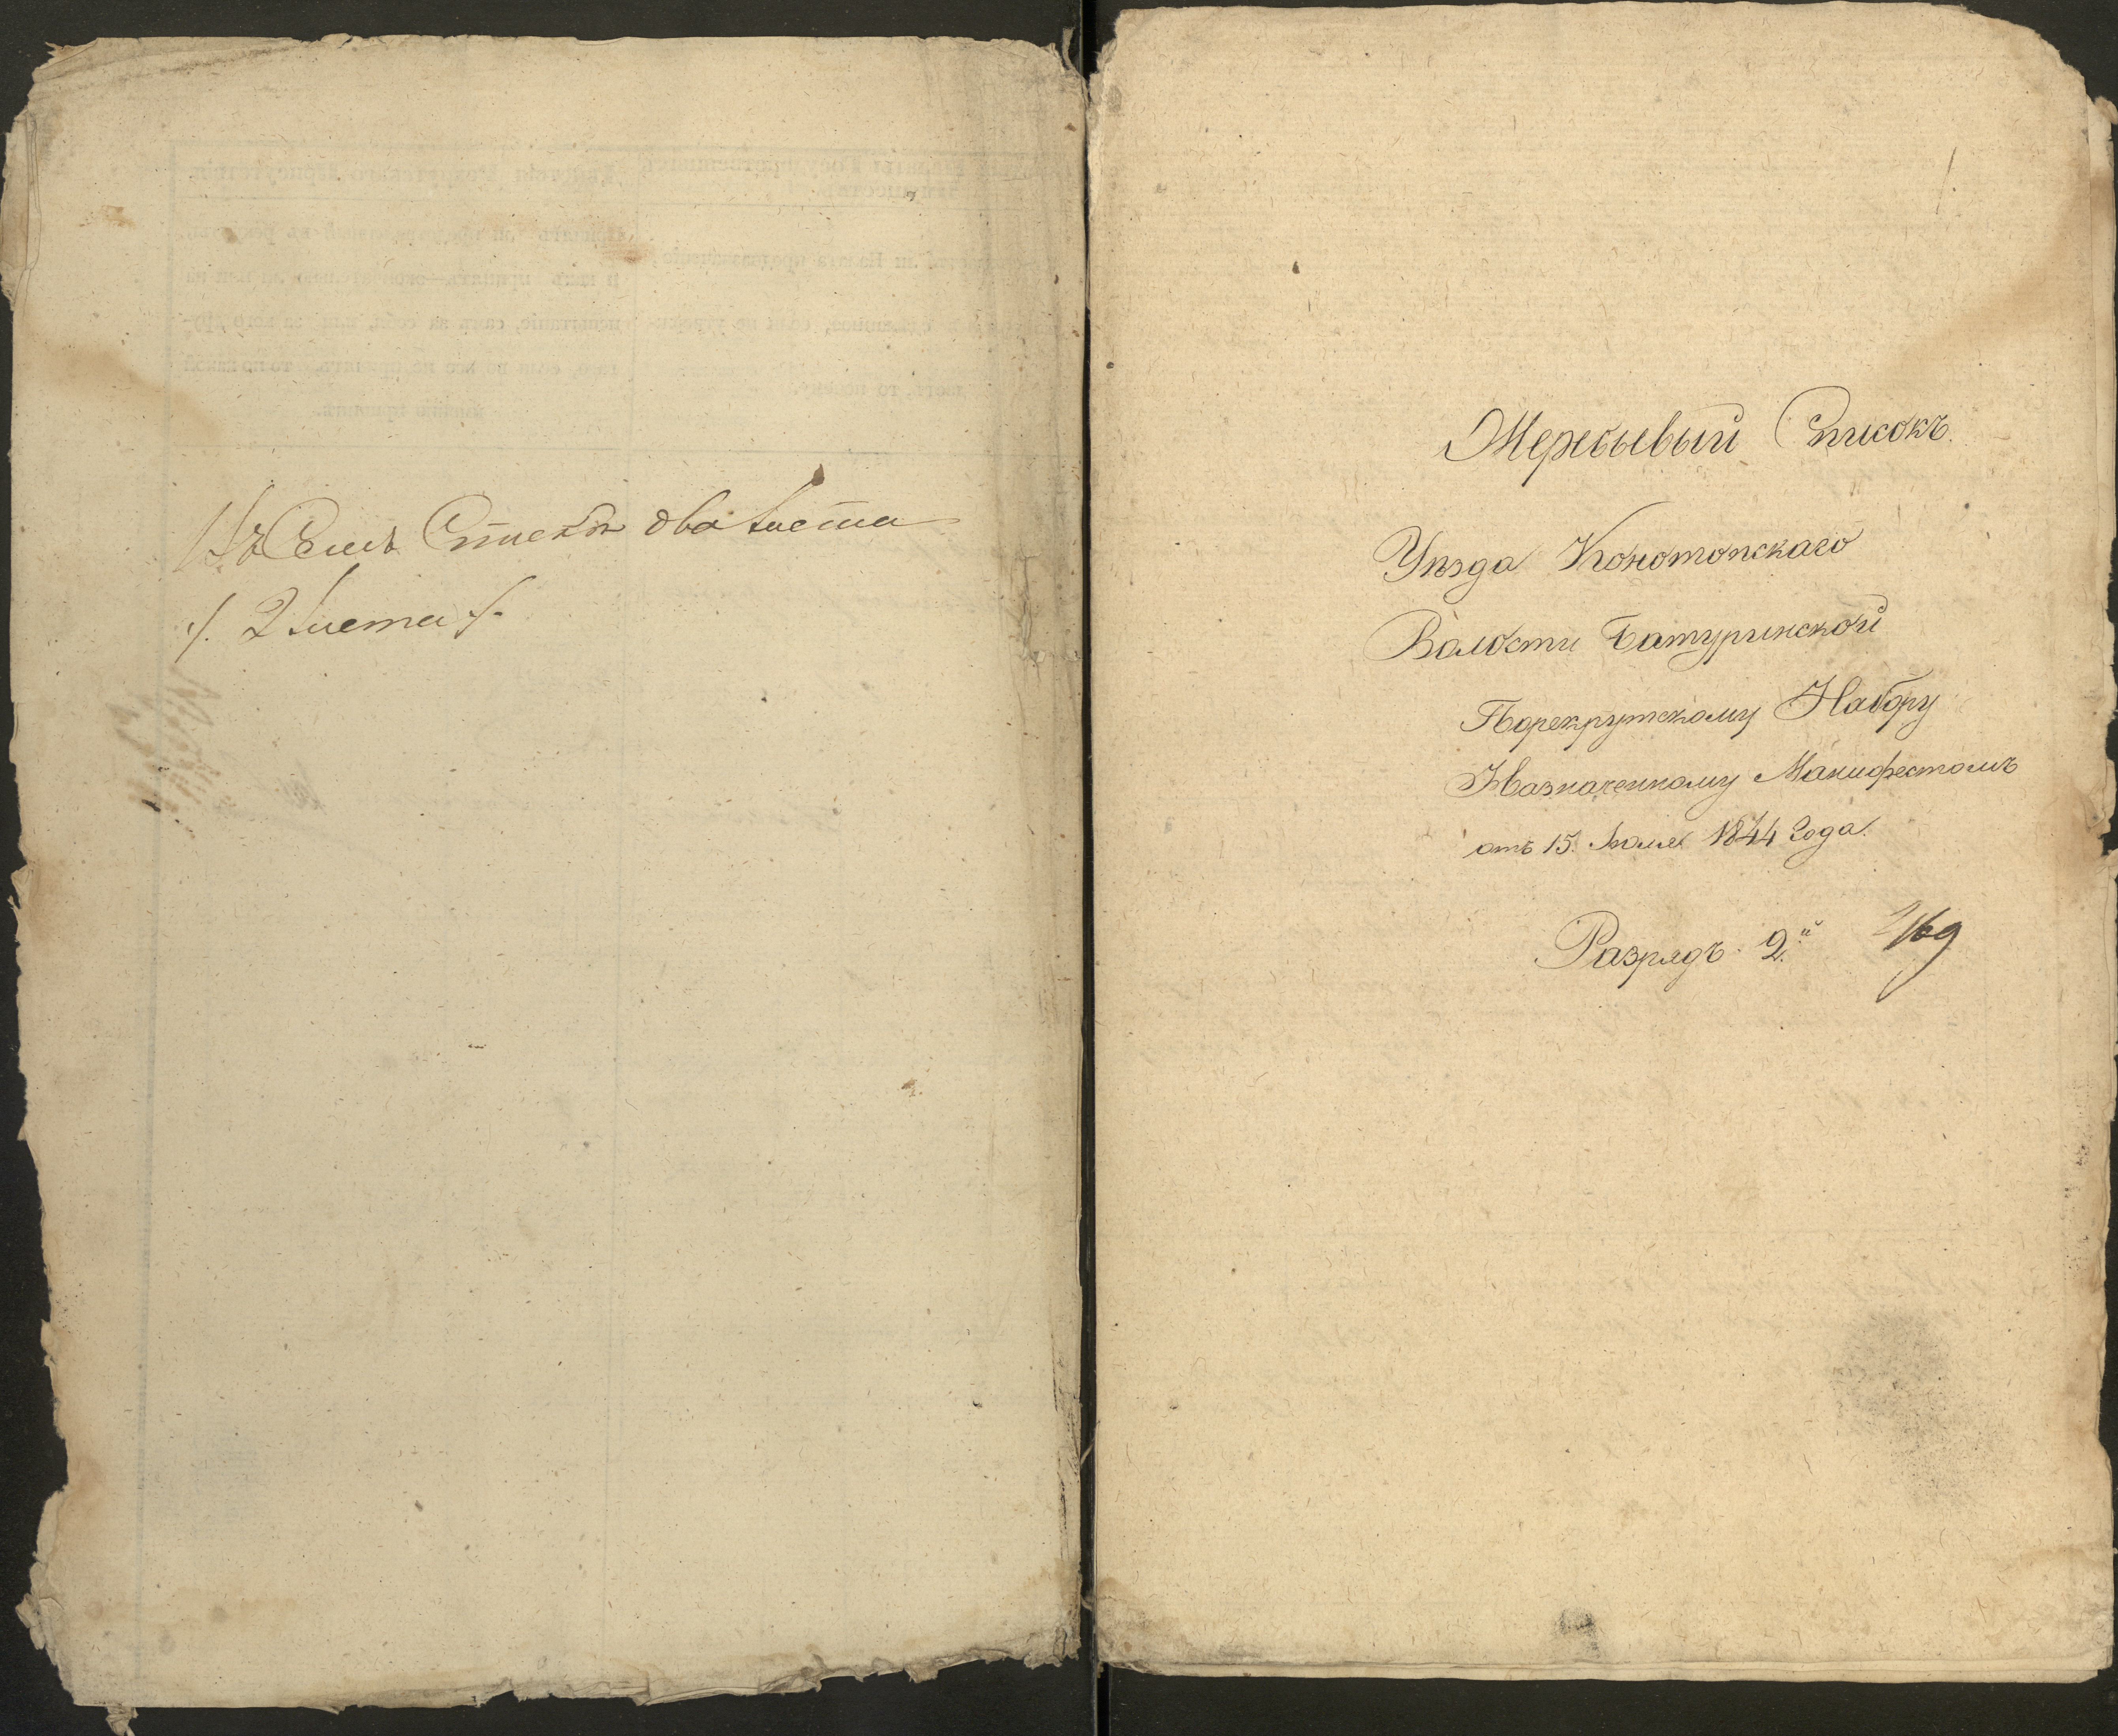 Въ Семъ Списке два Листа
/. 2 Листа /.
Жеребьевый Списокъ.
Уѣзда Конотопскаго
Волости Батуринской
По рекрутскому Набору
Назначенному Манифестомъ
отъ 15. Іюля 1844 Года.
Разрядъ. 2.й 169